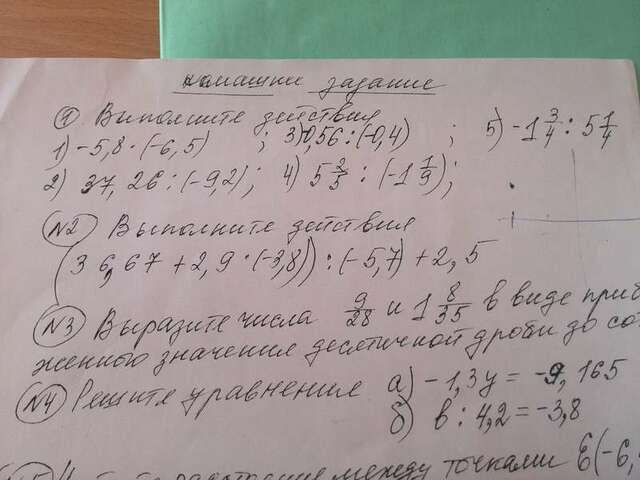 домашнее задание
① Выполните действия
1) -5,8 · (-6,5) ; 3) 0,56 : (-0,4) ; 5) -1 3/4 : 5 1/4
2) 37,26 : (-9,2) ; 4) 5 2/5 : (-1 1/9) ;
№2 Выполните действия
(36,67 + 2,9 · (-3,8)) : (-5,7) + 2,5
№3 Выразите числа 9/28 и 1 8/35 в виде приб
женного значения десятичной дроби до со
№4 Решите уравнения а) -1,3y = -9,165
б) в : 4,2 = -3,8
между точками E(-6,